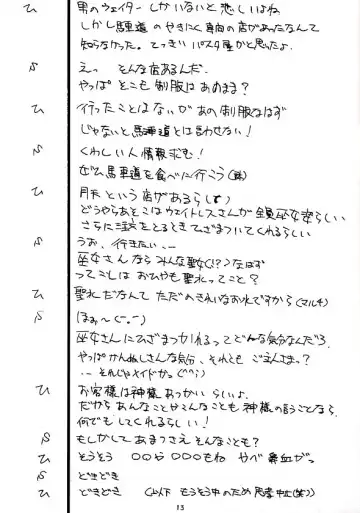 ひ 男のウェイターしかいないと悲しいよね
しかし馬車道のやきにく専門の店があったなんて
知らなかった。てっきりパスタ屋かと思ったよ。
S えっ そんな店あるんだ.
やっぱどこも制服はあのまま？
ひ 行ったことはないがあの制服なはず
じゃないと馬車道とは言わせない！
S くわしい人情報求む！
ぜひ馬車道を食べに行こう(舞)
ひ 月天という店があるら(し)
どうやらあそこはウェイトレスさんが全員巫女らしい
さらに注文をとるときひざまづいてくれるらしい
S うお、行きたい、…
巫女さんならみんな聖女(!?)なはず
ってことはおひやも聖水ってこと？
ひ 聖水だなんてただのきれいなお水ですから(マルチ)
S ほぁ〜(-。-)
巫女さんにひざまづかれるってどんな気分なんだろ.
やっぱかんぬしさんな気分、それともごえんさまっ？
…それじゃメイドかっ(^^;)
ひ お客様は神様あつかいらしいよ.
だからあんなことやこんなことも神様の言うことなら
何でもしてくれるらしい！
S もしかしてあまつさえそんなことも？
ひ そうそう ○○や○○○もね やべ鼻血がっ
S どきどき
ひ どきどき (以下もうそう中のため思考中止(笑))
13